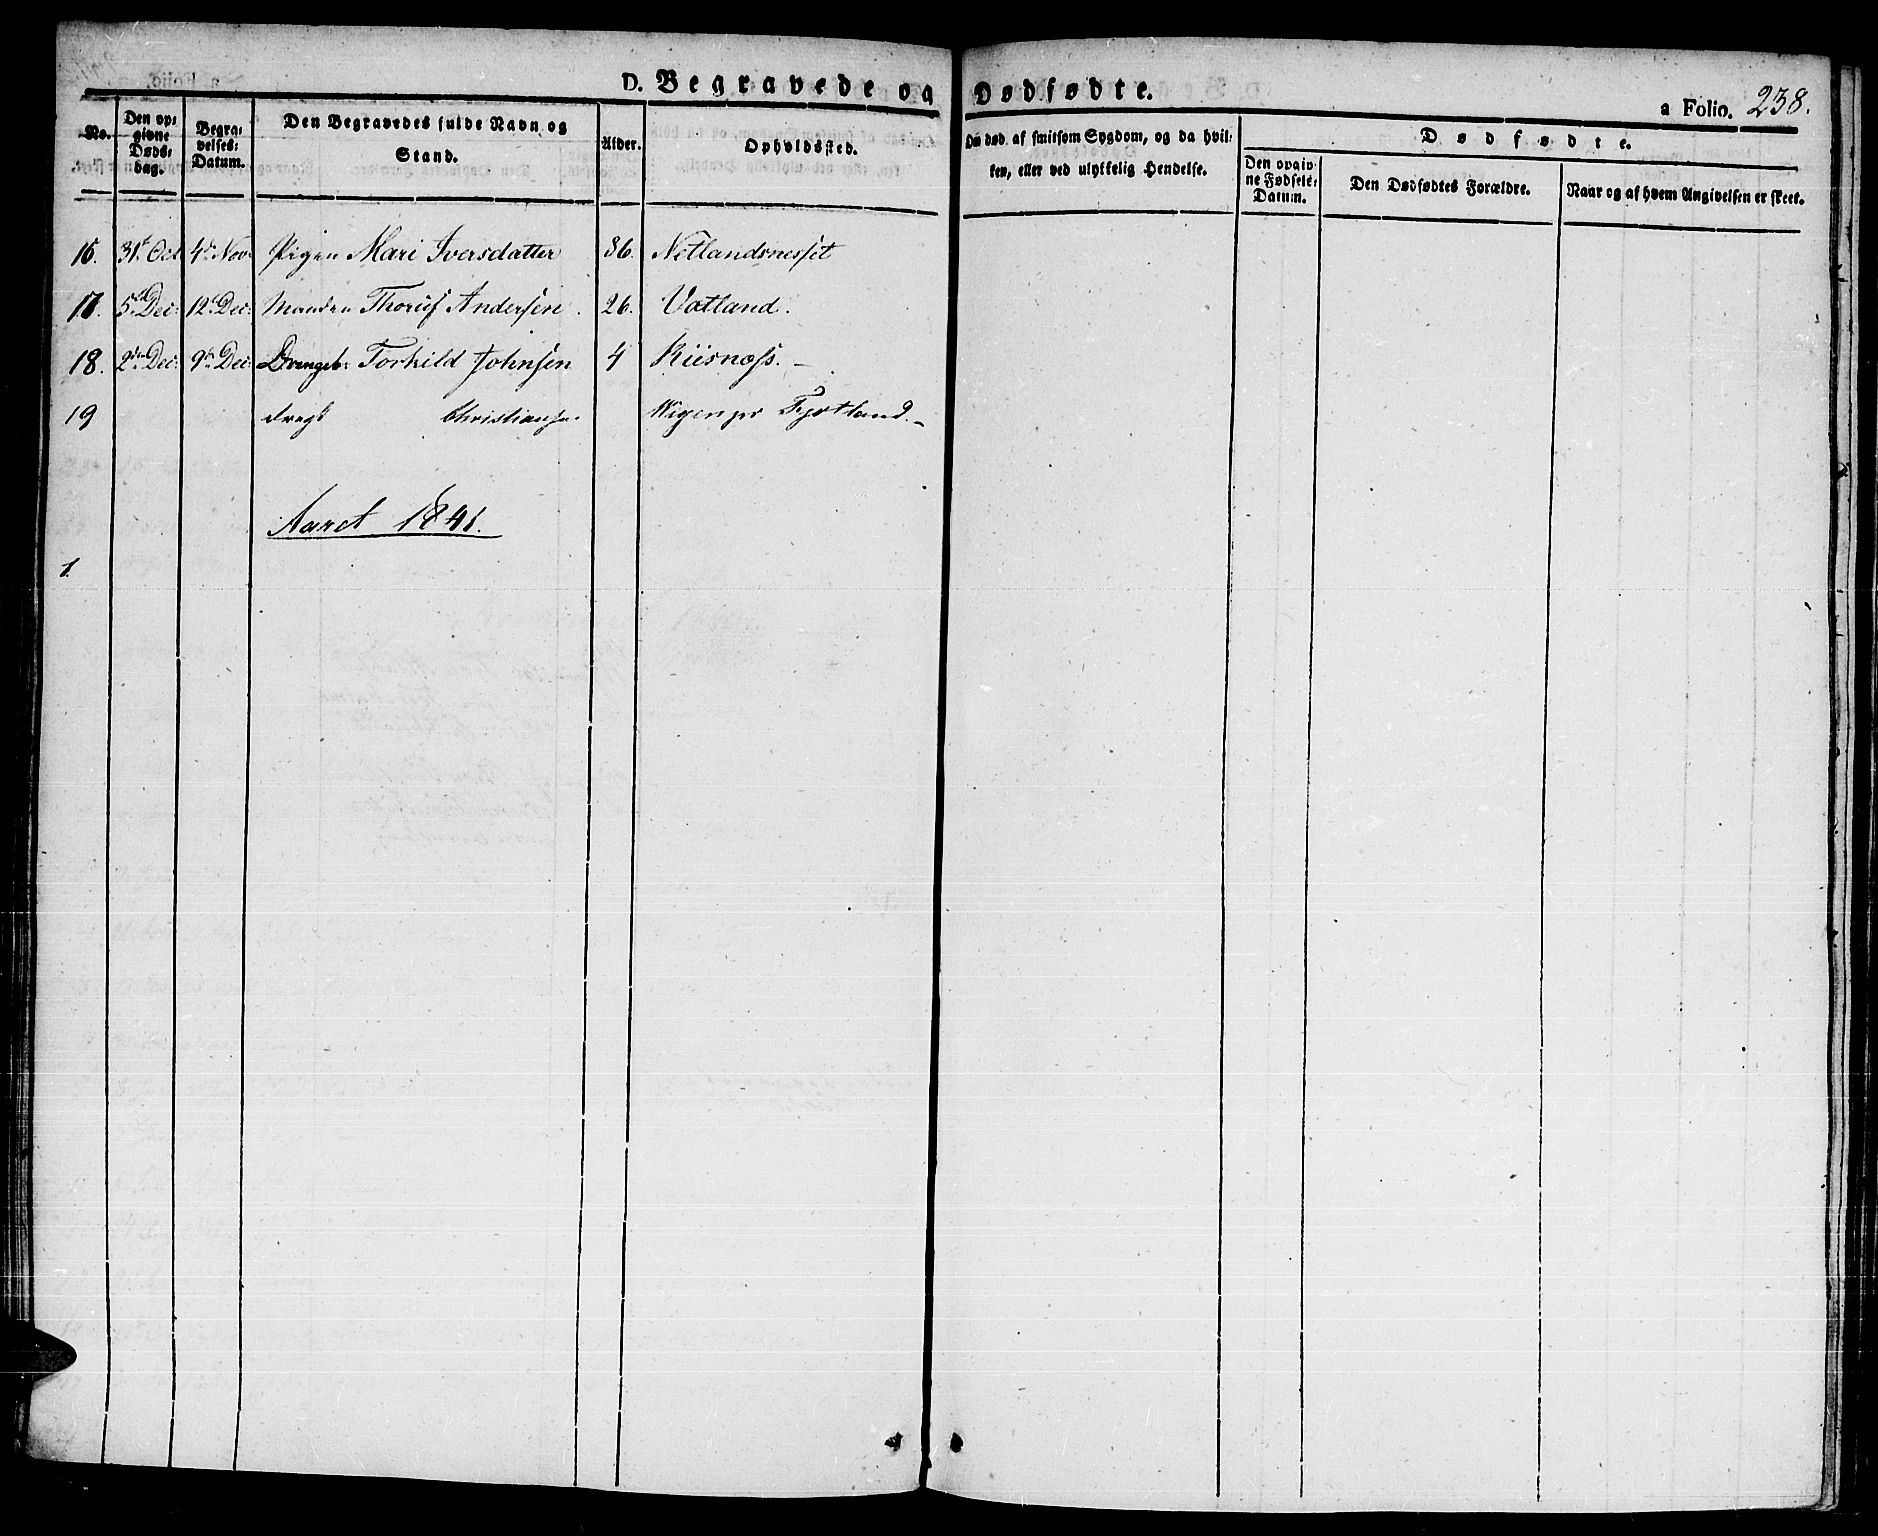 D. Begravede og Dødfødte.
a Folio. 238.
No.
Den opgivne Døds-dag.
Begravelses-Datum.
Den Begravedes fulde Navn og Stand.
Alder.
Opholdssted.
Om død af smitsom Sygdom, og da hvilken, eller ved ulykkelig Hendelse.
Dødfødte.
Den opgivne Fødsels-Datum.
Den Dødfødtes Forældre.
Naar og af hvem Angivelsen er skeet.
16. 31t Oct 4d Nov Pigen Mari Iversdatter 36. Netlandsnesset
17. 5t Dec: 12t Dec: Manden Andersen. 26. Vatland.
18. 2d Dec: 9d Dec: Drengeb: Torkild Johnsen 4 Riisness. -
19 Christiansen Fjotland. -
Aaret 1841.
1.